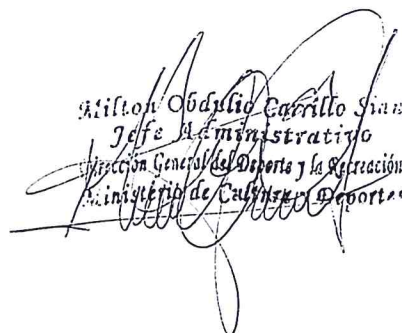 Milton Obdulio Carrillo
Jefe Administrativo
Dirección General del Deporte y la Recreación
Ministerio de Cultura y Deportes